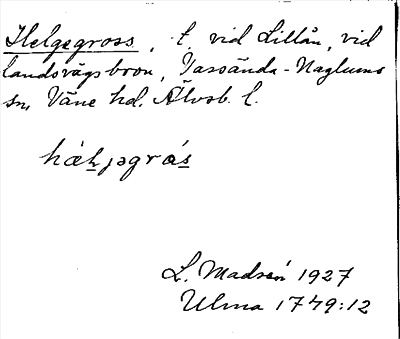 Helgegross, t. vid Lillån, vid
landsvägsbron, Vassända-Naglums
sn, Väne hd. Älvsb. l.
L. Madsén 1927
Ulma 1749:12